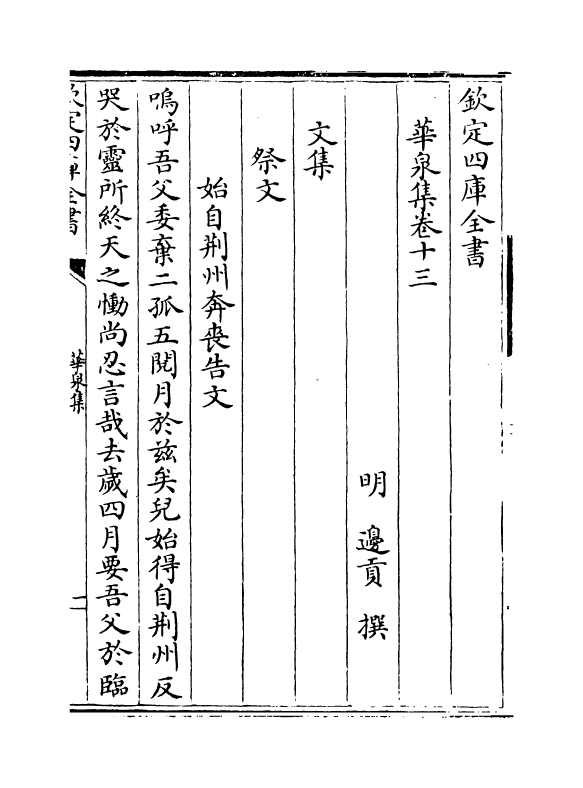 欽定四庫全書
華泉集卷十三
明 邊貢 撰
文集
祭文
始自荆州奔喪告文
嗚呼吾父委棄二孤五閱月於兹矣兒始得自荆州反
哭於靈所終天之慟尚忍言哉去歲四月要吾父於臨
欽定四庫全書
華泉集
一